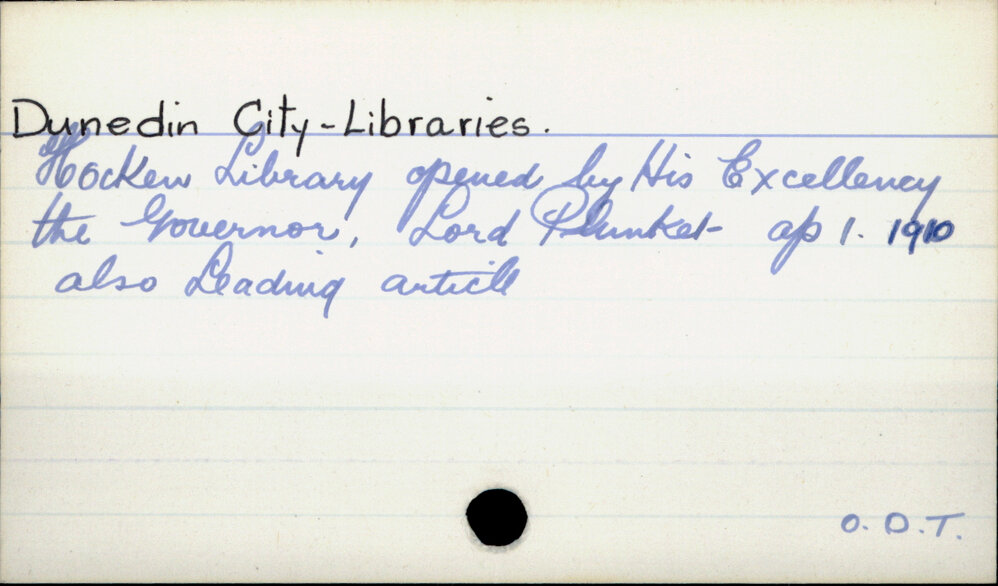 Dunedin City-Libraries.
Hocken Library opened by His Excellency
the Governor, Lord Plunket ap 1. 1910
also Leading article
O.D.T.